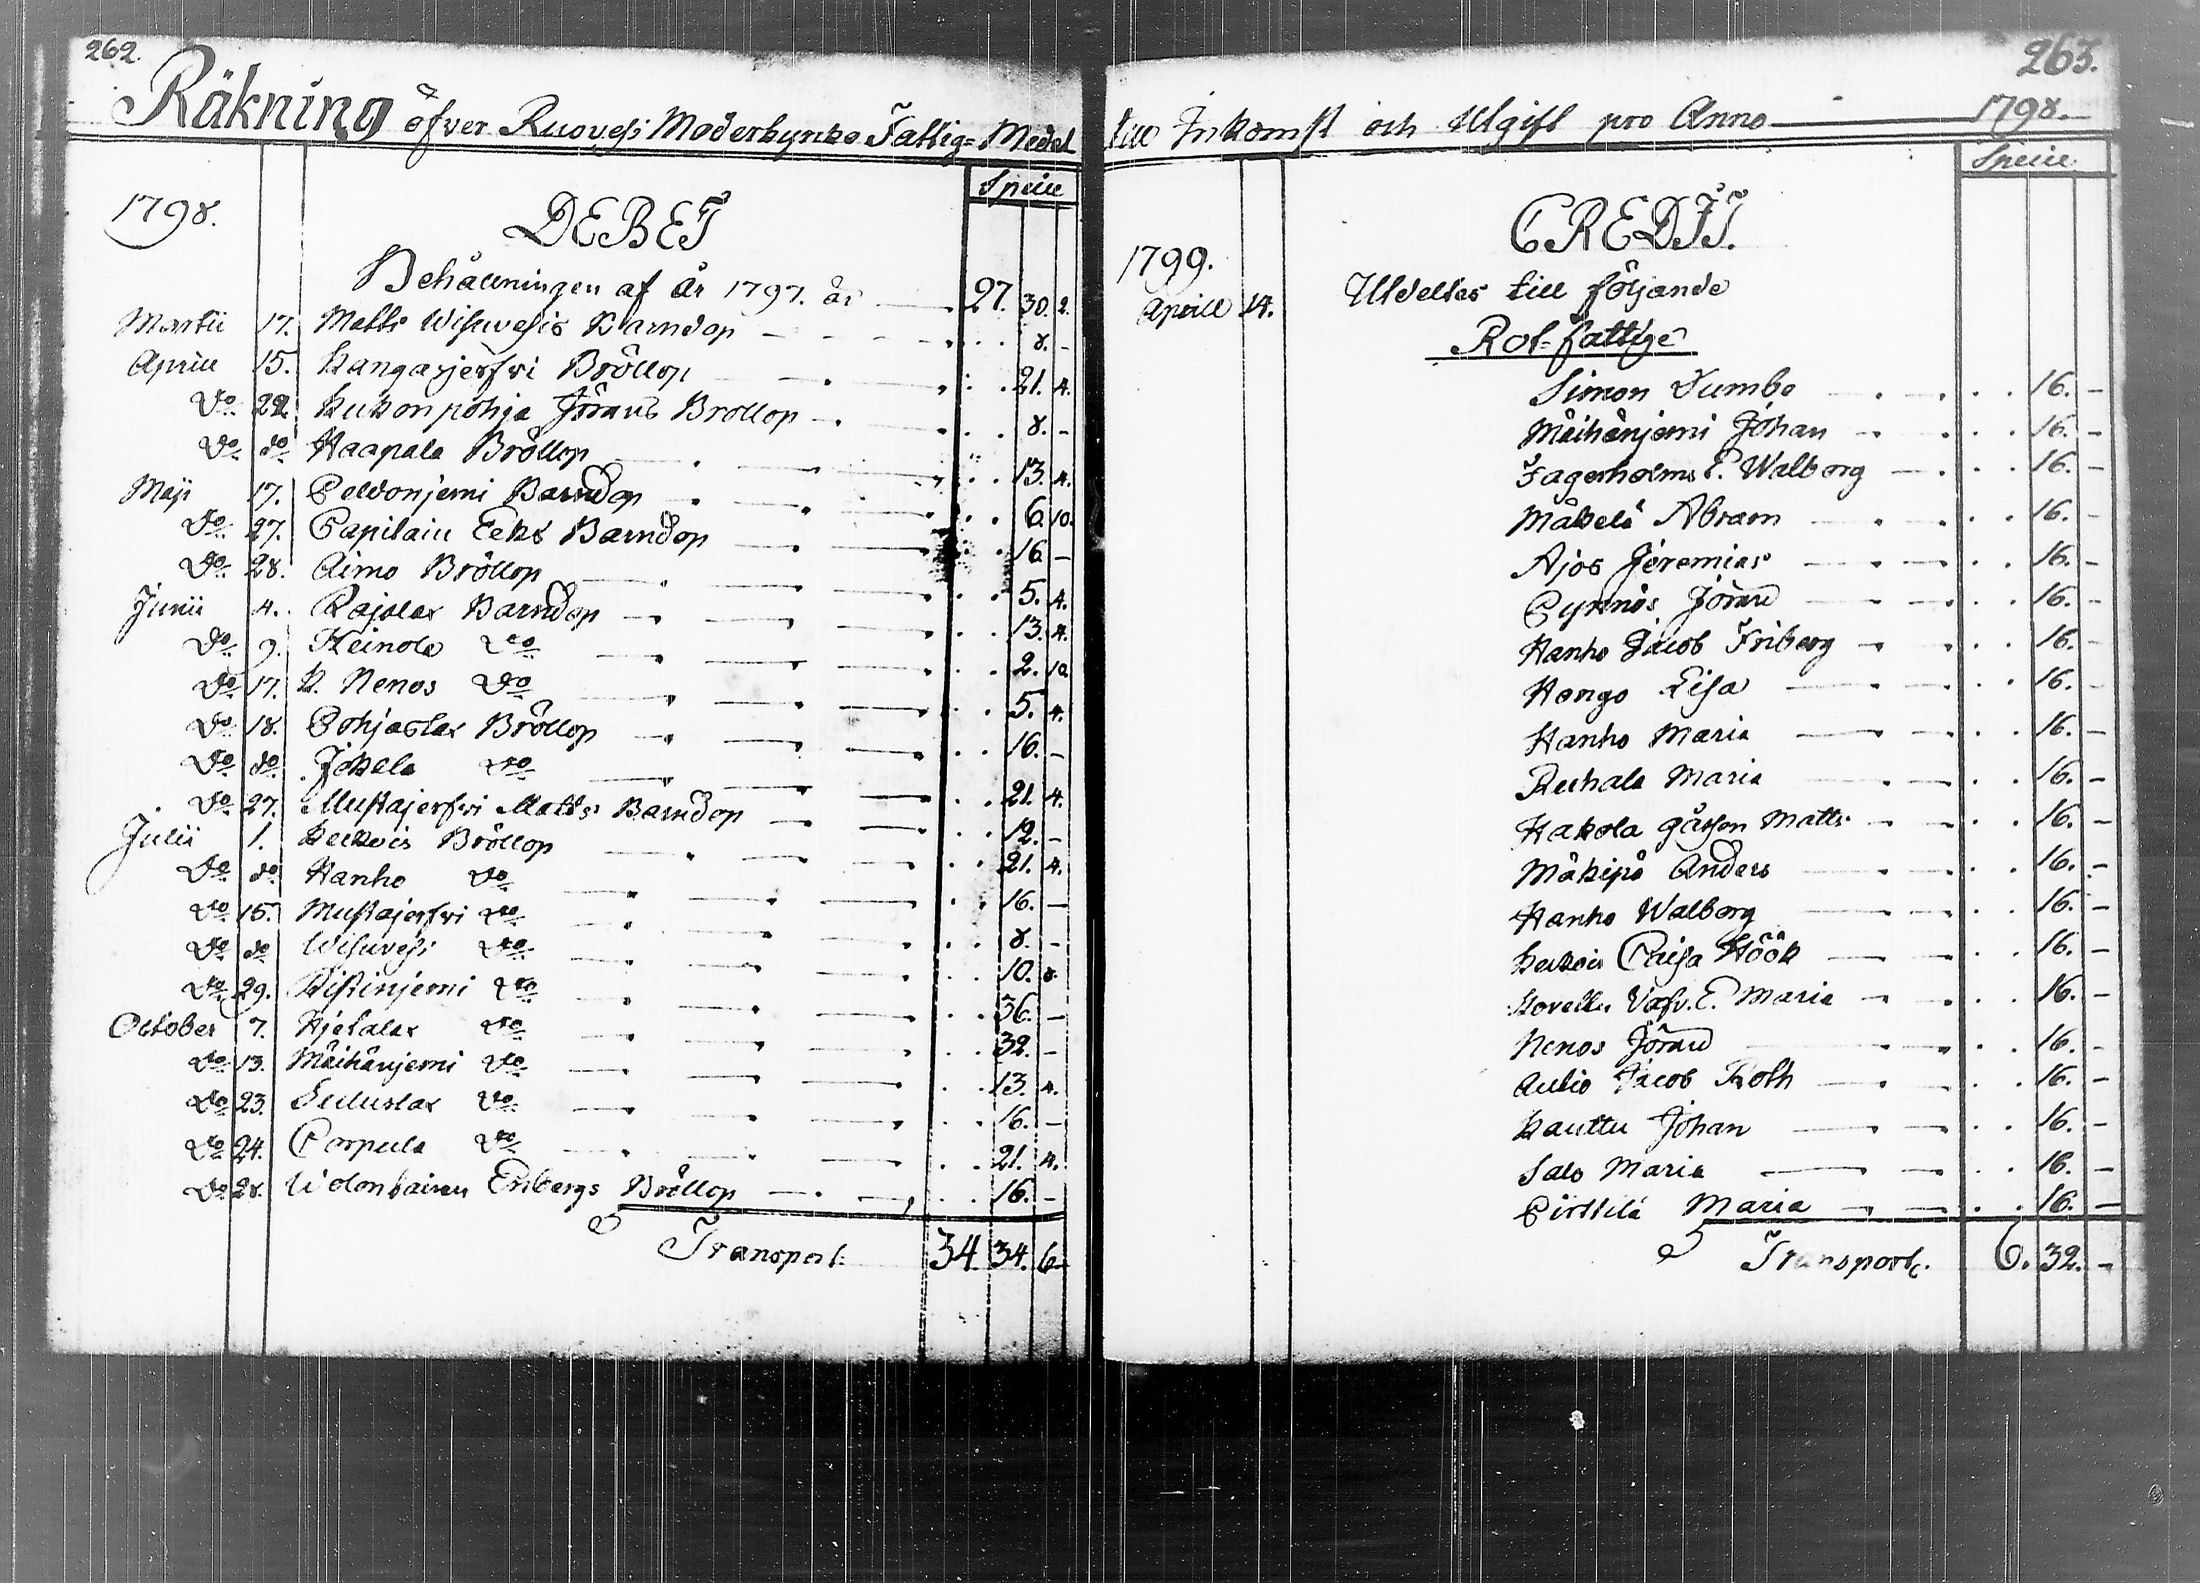 262.
Räkning öfver Ruovesi Moderkyrkio Fattig-Medel
Specie
1798. DEBET
Behållningen af år 1797. år 27. 30. 2.
Martii 17. Matts Wisuvesis Barndop 8. -
Aprill 15. Kangasjerfvi Bröllop 21. 4.
Do 22. Kukonpohja Jörans Bröllop 8. -
Do do Haapala Bröllop 13. 4.
Maji 17. Peldonjemi Barndop 6. 10.
Do 27. Capitain Eeks Barndop 16. -
Do 28. Aimo Bröllop 5. 4.
Junii 4. Rajalax Barndop 13. 4.
Do 9. Heinola Do 2. 10.
Do 17. K. Nenos Do 5. 4.
Do 18. Pohjaslax Bröllop 16. -
Do do Jokela Do 21. 4.
Do 27. Mustajerfvi Matts Barndop 12. -
Julii 1. Keckois Bröllop 21. 4.
Do do Hanho Do 16. -
Do 15. Mustajerfvi Do 8. -
Do do Wisuvesi Do 10. 8.
Do 29. Ristinjemi Do 36. -
October 7. Hjetalax Do 32. -
Do 13. Mäihänjemi Do 13. 4.
Do 23. Do 16. -
Do 24. Porpula Do 21. 4.
Do 28. Enbergs Bröllop 16. -
Transport 34. 34. 6.
263.
till Inkomst och Utgift pro Anno 1798.
Specie
CREDIT.
1799.
Aprill 14. Utdeltes till följande
Rot-fattige
Simon Dumbo 16. -
Mäihänjemi Johan 16. -
Fagerholms E. Walborg 16. -
Mäkelä Abram 16. -
Ajos Jeremias 16. -
Pynnös Jöran 16. -
Hanho Jacob Friberg 16. -
Hango Lisa 16. -
Hanho Maria 16. -
Ruhala Maria 16. -
Hakola gåsson Matts 16. -
Mäkipä Anders 16. -
Hanho Walborg 16. -
Keckois Caisa Höök 16. -
E. Maria 16. -
Nenos Jöran 16. -
Autio Jacob Roth 16. -
Kauttu Johan 16. -
Salo Maria 16. -
Pirttilä Maria 16. -
Transport. 6. 32. -